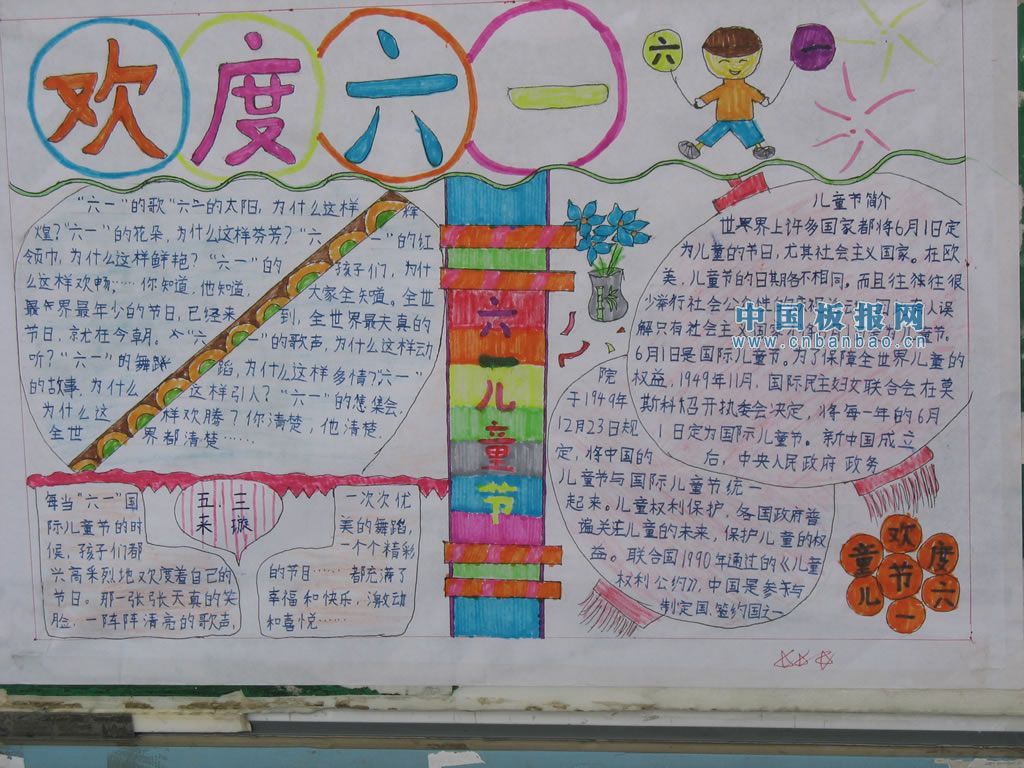 欢度六一
六
一
"六一"的歌"六一的太阳,为什么这样辉
煌?"六一"的花朵,为什么这样芬芳?"六一"的红
领巾,为什么这样鲜艳?"六一"的孩子们,为什
么这样欢畅……你知道,他知道,大家全知道。全世
最世界最年少的节日,已经来到,全世界最天真的
节日,就在今朝。"六一"的歌声,为什么这样动
听?"六一"的舞蹈,为什么这样多情?"六一"
的故事,为什么这样引人?"六一"的集会,
为什么这样欢腾?你清楚,他清楚,
全世界都清楚……
每当"六一"国
际儿童节的时
候,孩子们都
兴高采烈地欢度着自己的
节日。那一张张天真的笑
脸,一阵阵清亮的歌声,
五.三
采璇
一次次优
美的舞蹈,
一个个精彩
的节目……都充满了
幸福和快乐,激动
和喜悦……
六一儿童节
儿童节简介
世界上许多国家都将6月1日定
为儿童的节日,尤其社会主义国家。在欧
美,儿童节的日期各不相同。而且往往很
少举行社会公
人误
解只有社会主义国
6月1日是国际儿童节。为了保障全世界儿童的
权益,1949年11月,国际民主妇女联合会在莫
斯科召开执委会决定,将每一年的6月
1日定为国际儿童节。新中国成立
后,中央人民政府政务
院
于1949年
12月23日规
定,将中国的
儿童节与国际儿童节统一
起来。儿童权利保护,各国政府普
遍关注儿童的未来,保护儿童的权
益。联合国1990年通过的《儿童
权利公约》,中国是参与
制定国,签约国之一
中国板报网
www.cnbanbao.cn
欢度六一儿童节